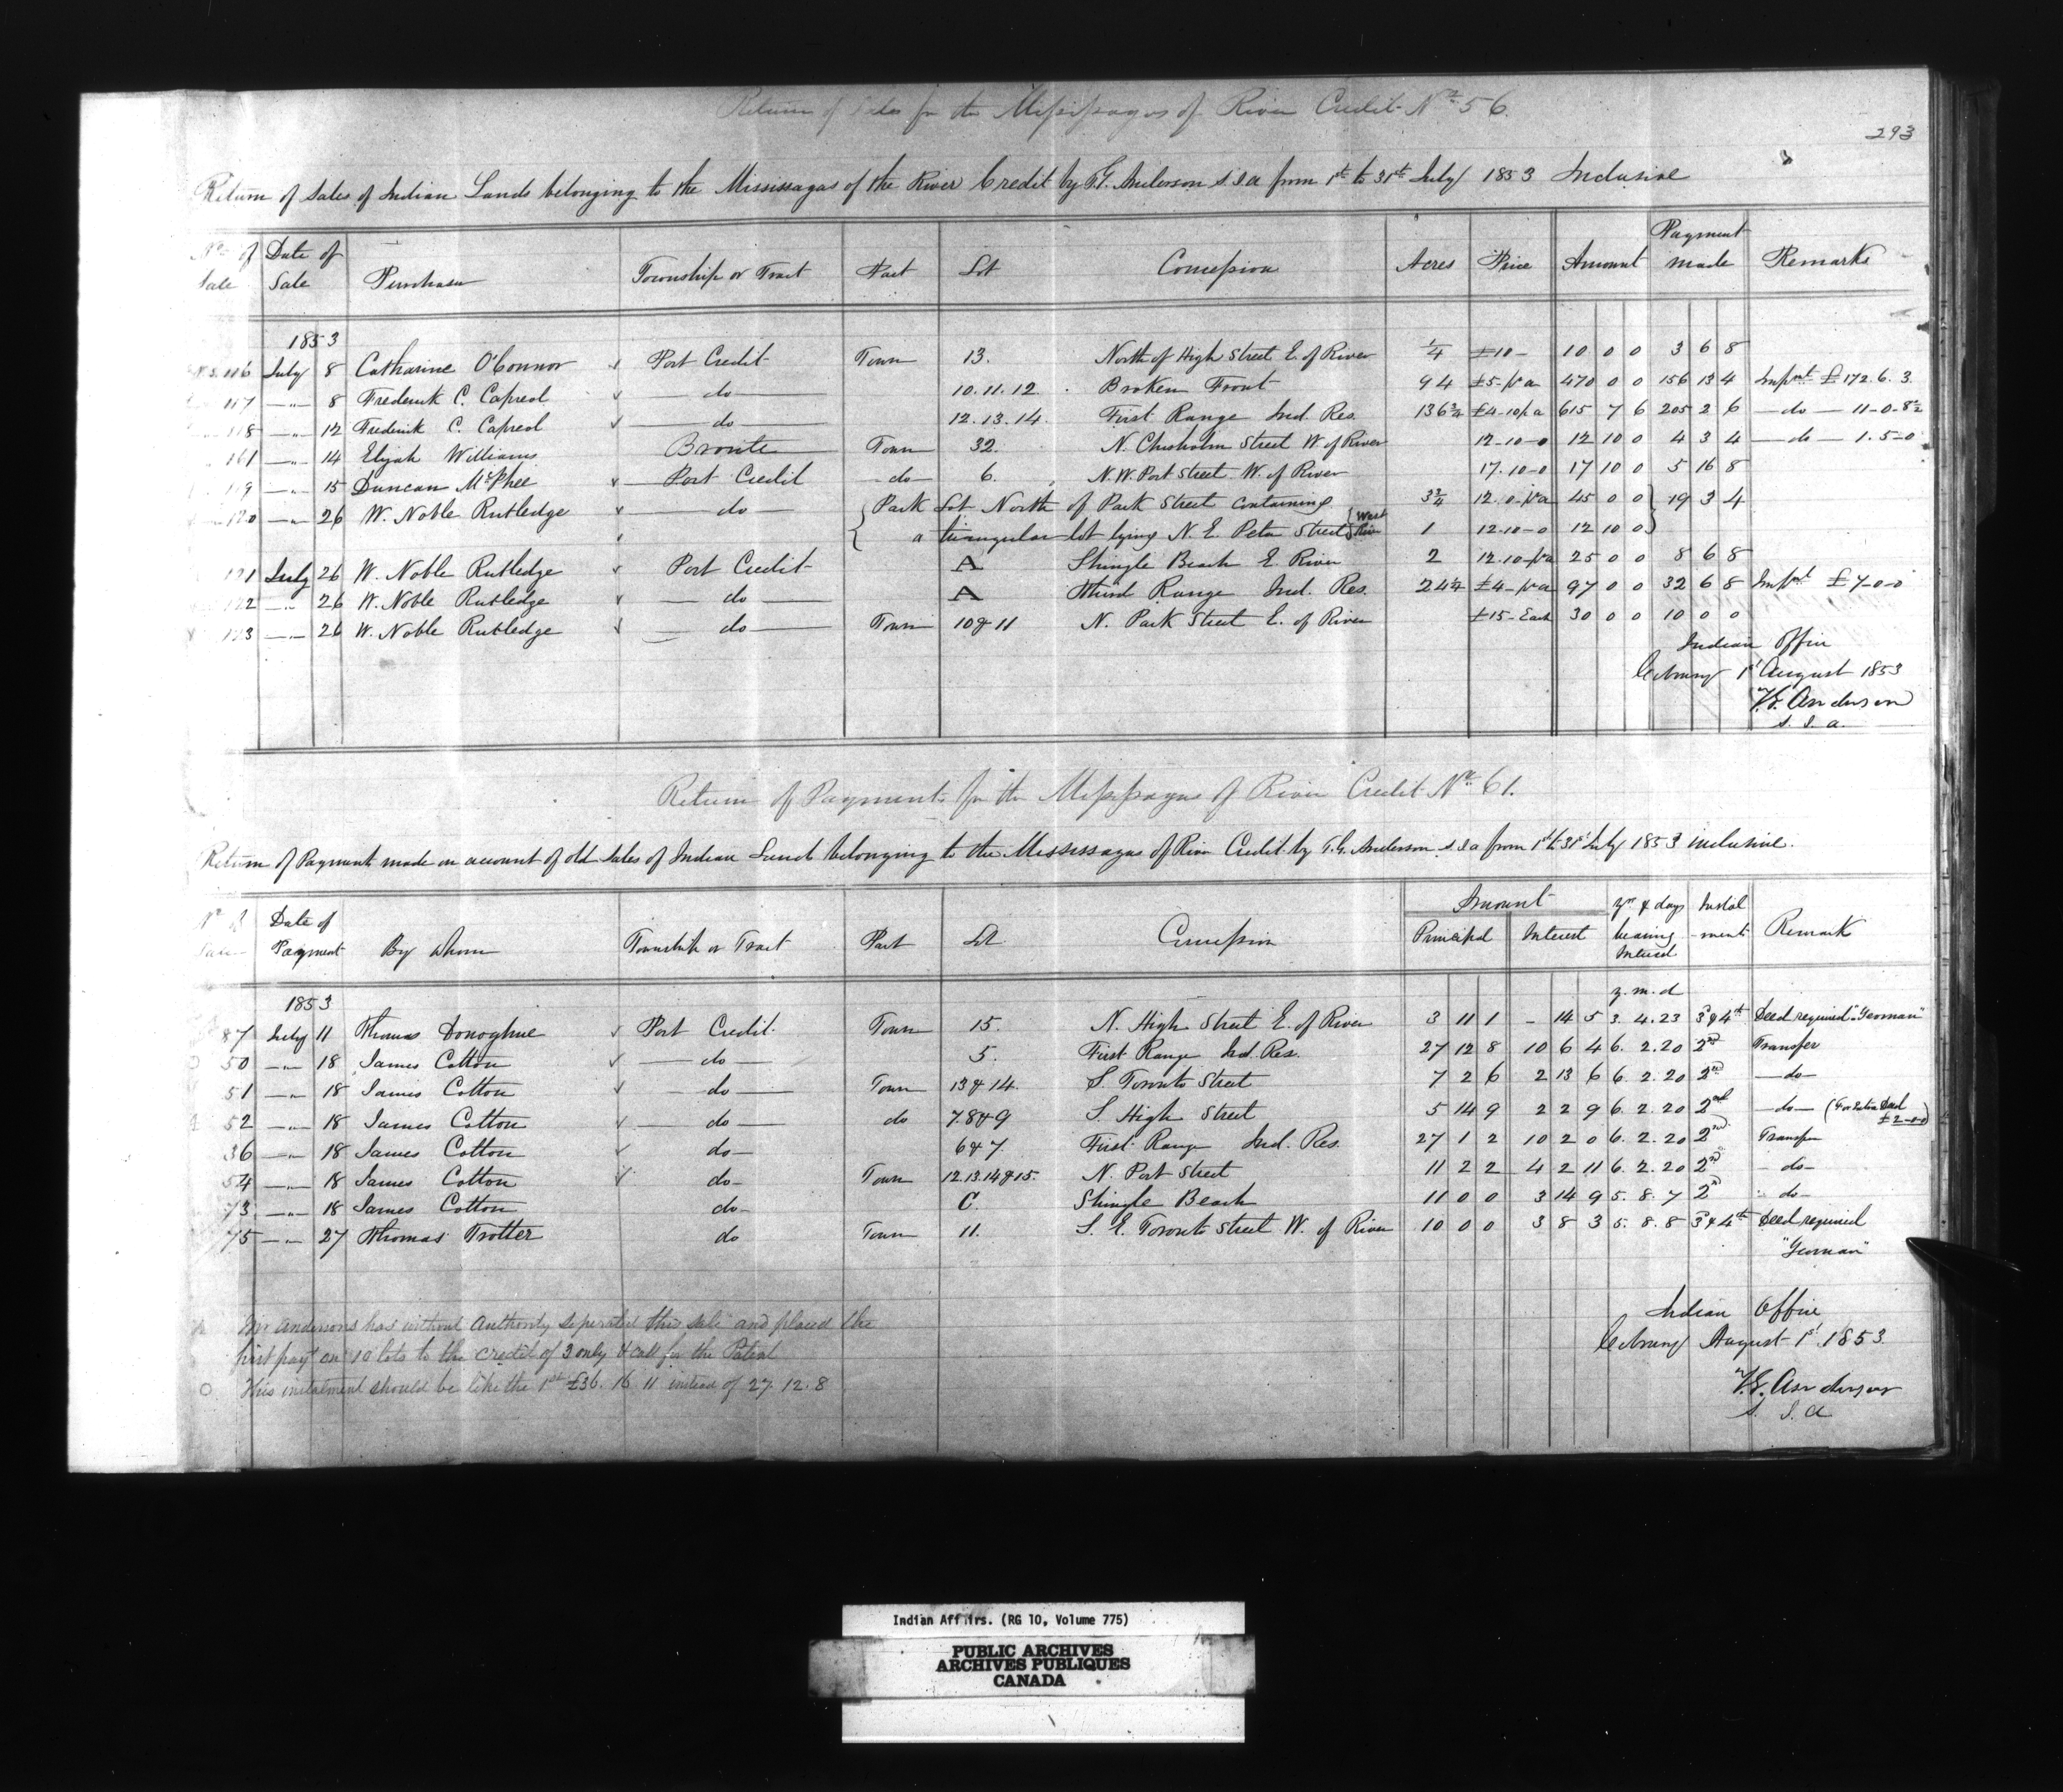 Return of Sales for the Missisagas of River Credit No 56.
293
Return of Sales of Indian Lands belonging to the Mississagas of the River Credit by T.G. Anderson S.I.A from 1st to 31st July 1853 Inclusive
No of Sale Date of Sale Purchaser Township or Tract Part Lot Concession Acres Price Amount Payment made Remarks
1853
116 July 8 Catharine O'Connor Port Credit Town 13. North of High Street E. of River 1/4 £10- 10 0 0 3 6 8
117 —"— 8 Frederick C. Capreol — do — 10.11.12. Broken Front 94 £5-pr a 470 0 0 156 13 4 Impmt £172.6.3
118 —"— 12 Frederick C. Capreol — do — 12.13.14. First Range Ind. Res. 136 3/4 £4-10 pr a 615 7 6 205 2 6 — do — 11-0-8 1/2
161 —"— 14 Elijah Williams Bronte Town 32. N. Chisholm Street W. of River 12-10-0 12 10 0 4 3 4 — do — 1.5-0
119 —"— 15 Duncan McPhee Port Credit - do - 6. N.W. Port Street W. of River 17.10-0 17 10 0 5 16 8
120 —"— 26 W. Noble Rutledge — do — Park Lot North of Park Street containing 3 3/4 12.0-pr a 45 0 0 19 3 4
a triangular lot lying N. E. Peter Street West River 1 12-10-0 12 10 0
121 July 26 W. Noble Rutledge Port Credit A Shingle Beach E. River 2 12.10-pr a 25 0 0 8 6 8
122 —"— 26 W. Noble Rutledge — do — A Third Range Ind. Res. 24 1/4 £4-pr a 97 0 0 32 6 8 Impmt £7-0-0
123 —"— 26 W. Noble Rutledge — do — Town 10 & 11 N. Park Street E. of River £15-Each 30 0 0 10 0 0
Indian Office
Cobourg 1st August 1853
T.G. Anderson
S. I. A.
Return of Payments for the Missisagas of River Credit No 61.
Return of Payments made on account of old Sales of Indian Lands belonging to the Mississagas of River Credit by T.G. Anderson S.I.A from 1st to 31st July 1853 inclusive.
No of Sale Date of Payment By whom Township or Tract Part Lot Concession Amount Principal Interest yrs & days bearing Interest Instalment Remark
1853 y. m. d
87 July 11 Thomas Donoghue Port Credit Town 15. N. High Street E. of River 3 11 1 - 14 5 3. 4. 23 3d & 4th Deed required "Yeoman"
50 —"— 18 James Cotton — do — 5. First Range Ind. Res. 27 12 8 10 6 4 6. 2. 20 2nd Transfer
51 —"— 18 James Cotton — do — Town 13 & 14. S. Toronto Street 7 2 6 2 13 6 6. 2. 20 2nd — do —
52 —"— 18 James Cotton — do — do 7.8 & 9 S. High Street 5 14 9 2 2 9 6. 2. 20 2nd — do — (For Deed £2-0-0)
36 —"— 18 James Cotton do — 6 & 7. First Range Ind. Res. 27 1 2 10 2 0 6. 2. 20 2nd Transfer
54 —"— 18 James Cotton do — Town 12.13.14 & 15. N. Port Street 11 2 2 4 2 11 6. 2. 20 2nd - do -
73 —"— 18 James Cotton do - C. Shingle Beach 11 0 0 3 14 9 5. 8. 7 2d - do -
75 —"— 27 Thomas Trotter do Town 11. S. E. Toronto Street W. of River 10 0 0 3 8 3 5. 8. 8 3d & 4th Deed required
"Yeoman"
Mr Anderson has without Authority seperated this sale and placed the
first payt on 10 lots to the credit of 3 only & call for the Patent
O This instalment should be like the 1st £36. 16 11 instead of 27. 12. 8
Indian Office
Cobourg August 1st 1853.
T.G. Anderson
S. I. A
Indian Affairs. (RG 10, Volume 775)
PUBLIC ARCHIVES
ARCHIVES PUBLIQUES
CANADA